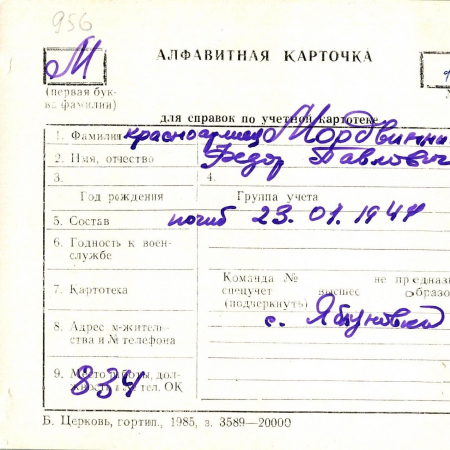 956
АЛФАВИТНАЯ КАРТОЧКА
М
(первая бук-
ва фамилии)
для справок по учетной картотеке
1. Фамилия красноармеец Мордвинни
2. Имя, отчество Федор Павлович
3. 4.
Год рождения Группа учета
5. Состав погиб 23.01.1944
6. Годность к воен-
службе
Команда № не предназ
7. Картотека спецучет высшее образо
(подчеркнуть)
8. Адрес м-житель-
ства и № телефона
с. Яблуновка
9. Место работы, дол-
жность и № тел. ОК
834
Б. Церковь, гортип., 1985, з. 3589—20000